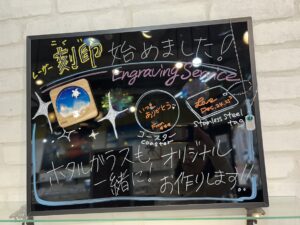 こく
レーザー 刻印 始めました!
Engraving Service
いつも
ありがとう
コースター
coaster
Stainless Steel
tag
ホタルガラスも オリジナル
一緒に! お作りします!!